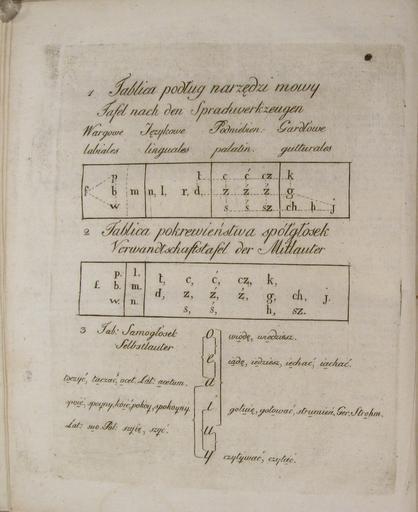 1 Tablica podług narzędzi mowy
Tafel nach den Sprachwerkzeugen
Wargowe Językowe Podniebien: Gardłowe
labiales linguales palatin. gutturales
p t c ć cz k
f. b m n, l, r. d, z ź ż g
w s ś sz ch h j
2 Tablica pokrewieństwa spółgłosek
Verwandtschaftstafel der Mitlauter
p. l. t, c, ć, cz, k,
f. b. m. d, z, ź, ż, g, ch, j.
w. n. s, ś, h, sz.
3 Tab: Samogłosek
Selbstlauter
o wiodę, wiedziesz.
e iadę, iedziesz, iechać, iachać.
toczyć, taczać, ocet. Lat: acetum. a
spoić, spoyny, koić, pokoy, spokoyny. i golnię, golować, strumień, Ger: Strohm.
Lat: suo. Pol: szyię, szyć. u
y czytywać, czytać.